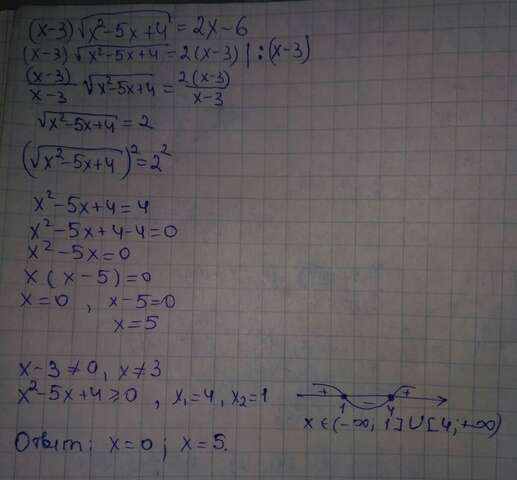 (x-3)√(x²-5x+4) = 2x-6
(x-3)√(x²-5x+4) = 2(x-3) | :(x-3)
(x-3)/(x-3) √(x²-5x+4) = 2(x-3)/(x-3)
√(x²-5x+4) = 2
(√(x²-5x+4))² = 2²
x²-5x+4=4
x²-5x+4-4=0
x²-5x=0
x(x-5)=0
x=0, x-5=0
x=5
x-3≠0, x≠3
x²-5x+4⩾0, x₁=4, x₂=1
+ - +
1 4
x∈(-∞; 1]∪[4; +∞)
Ответ: x=0; x=5.